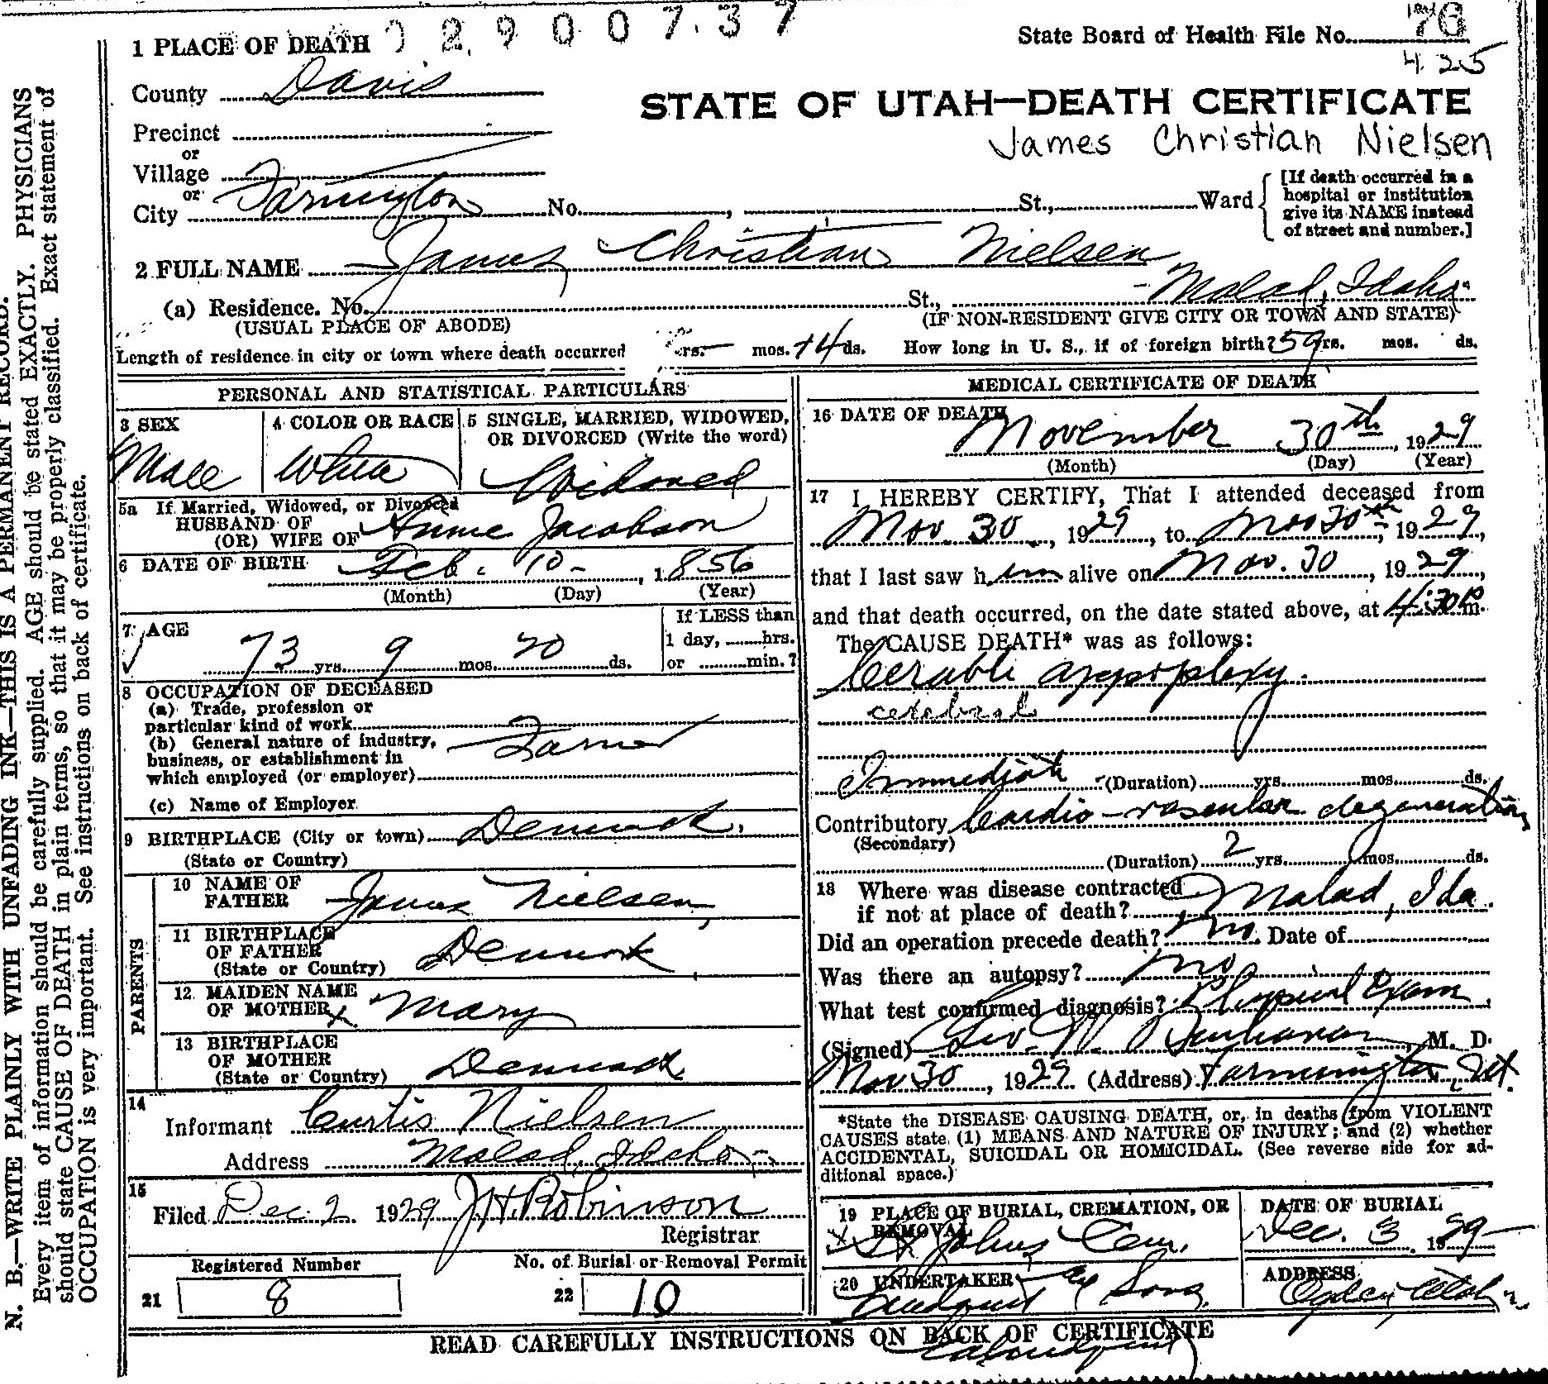 02900737
State Board of Health File No. 76
425
1 PLACE OF DEATH
County Davis
STATE OF UTAH—DEATH CERTIFICATE
James Christian Nielsen
Precinct
or
Village
or
City Farmington No. , St., Ward
[If death occurred in a
hospital or institution
give its NAME instead
of street and number.]
2 FULL NAME James Christian Nielsen
(a) Residence. No. St., Malad, Idaho.
(USUAL PLACE OF ABODE) (IF NON-RESIDENT GIVE CITY OR TOWN AND STATE)
Length of residence in city or town where death occurred yrs. mos. 14 ds. How long in U. S., if of foreign birth? 59 yrs. mos. ds.
PERSONAL AND STATISTICAL PARTICULARS
3 SEX
Male
4 COLOR OR RACE
White
5 SINGLE, MARRIED, WIDOWED,
OR DIVORCED (Write the word)
Widowed
5a If Married, Widowed, or Divorced
HUSBAND OF
(OR) WIFE OF Annie Jacobson
6 DATE OF BIRTH Feb. 10- , 1856
(Month) (Day) (Year)
7 AGE
73 yrs. 9 mos. 20 ds.
If LESS than
1 day, hrs.
or min.?
8 OCCUPATION OF DECEASED
(a) Trade, profession or
particular kind of work
(b) General nature of industry,
business, or establishment in
which employed (or employer)
Farmer
(c) Name of Employer
9 BIRTHPLACE (City or town) Denmark.
(State or Country)
PARENTS
10 NAME OF
FATHER James Nielsen,
11 BIRTHPLACE
OF FATHER
(State or Country) Denmark
12 MAIDEN NAME
OF MOTHER x Mary
13 BIRTHPLACE
OF MOTHER
(State or Country) Denmark
14
Informant Curtis Nielsen
Address Malad, Idaho-
15
Filed Dec. 2 1929 J.H. Robinson
Registrar
Registered Number
21 8
No. of Burial or Removal Permit
22 10
MEDICAL CERTIFICATE OF DEATH
16 DATE OF DEATH
November 30th, 1929
(Month) (Day) (Year)
17 I HEREBY CERTIFY, That I attended deceased from
Nov. 30, 1929, to Nov 30th, 1929
that I last saw him alive on Nov. 30, 1929,
and that death occurred, on the date stated above, at 4:30 P m.
The CAUSE DEATH* was as follows:
Cerable appoplexy.
cerebral
Immediate (Duration) yrs. mos. ds.
Contributory Cardio-vascular degeneration
(Secondary)
(Duration) 2 yrs. mos. ds.
18 Where was disease contracted
if not at place of death? Malad, Ida.
Did an operation precede death? no. Date of
Was there an autopsy? no
What test confirmed diagnosis? Physical Exam.
(Signed) Geo. W. Buchanan, M. D.
Nov 30, 1929 (Address) Farmington, Ut.
*State the DISEASE CAUSING DEATH, or, in deaths from VIOLENT
CAUSES state (1) MEANS AND NATURE OF INJURY; and (2) whether
ACCIDENTAL, SUICIDAL OR HOMICIDAL. (See reverse side for ad-
ditional space.)
19 PLACE OF BURIAL, CREMATION, OR
REMOVAL
x St Johns Cem.
DATE OF BURIAL
Dec. 3 1929
20 UNDERTAKER
Lindquist & Sons.
ADDRESS
Ogden, Utah
READ CAREFULLY INSTRUCTIONS ON BACK OF CERTIFICATE
N. B.—WRITE PLAINLY WITH UNFADING INK—THIS IS A PERMANENT RECORD.
Every item of information should be carefully supplied. AGE should be stated EXACTLY. PHYSICIANS
should state CAUSE OF DEATH in plain terms, so that it may be properly classified. Exact statement of
OCCUPATION is very important. See instructions on back of certificate.